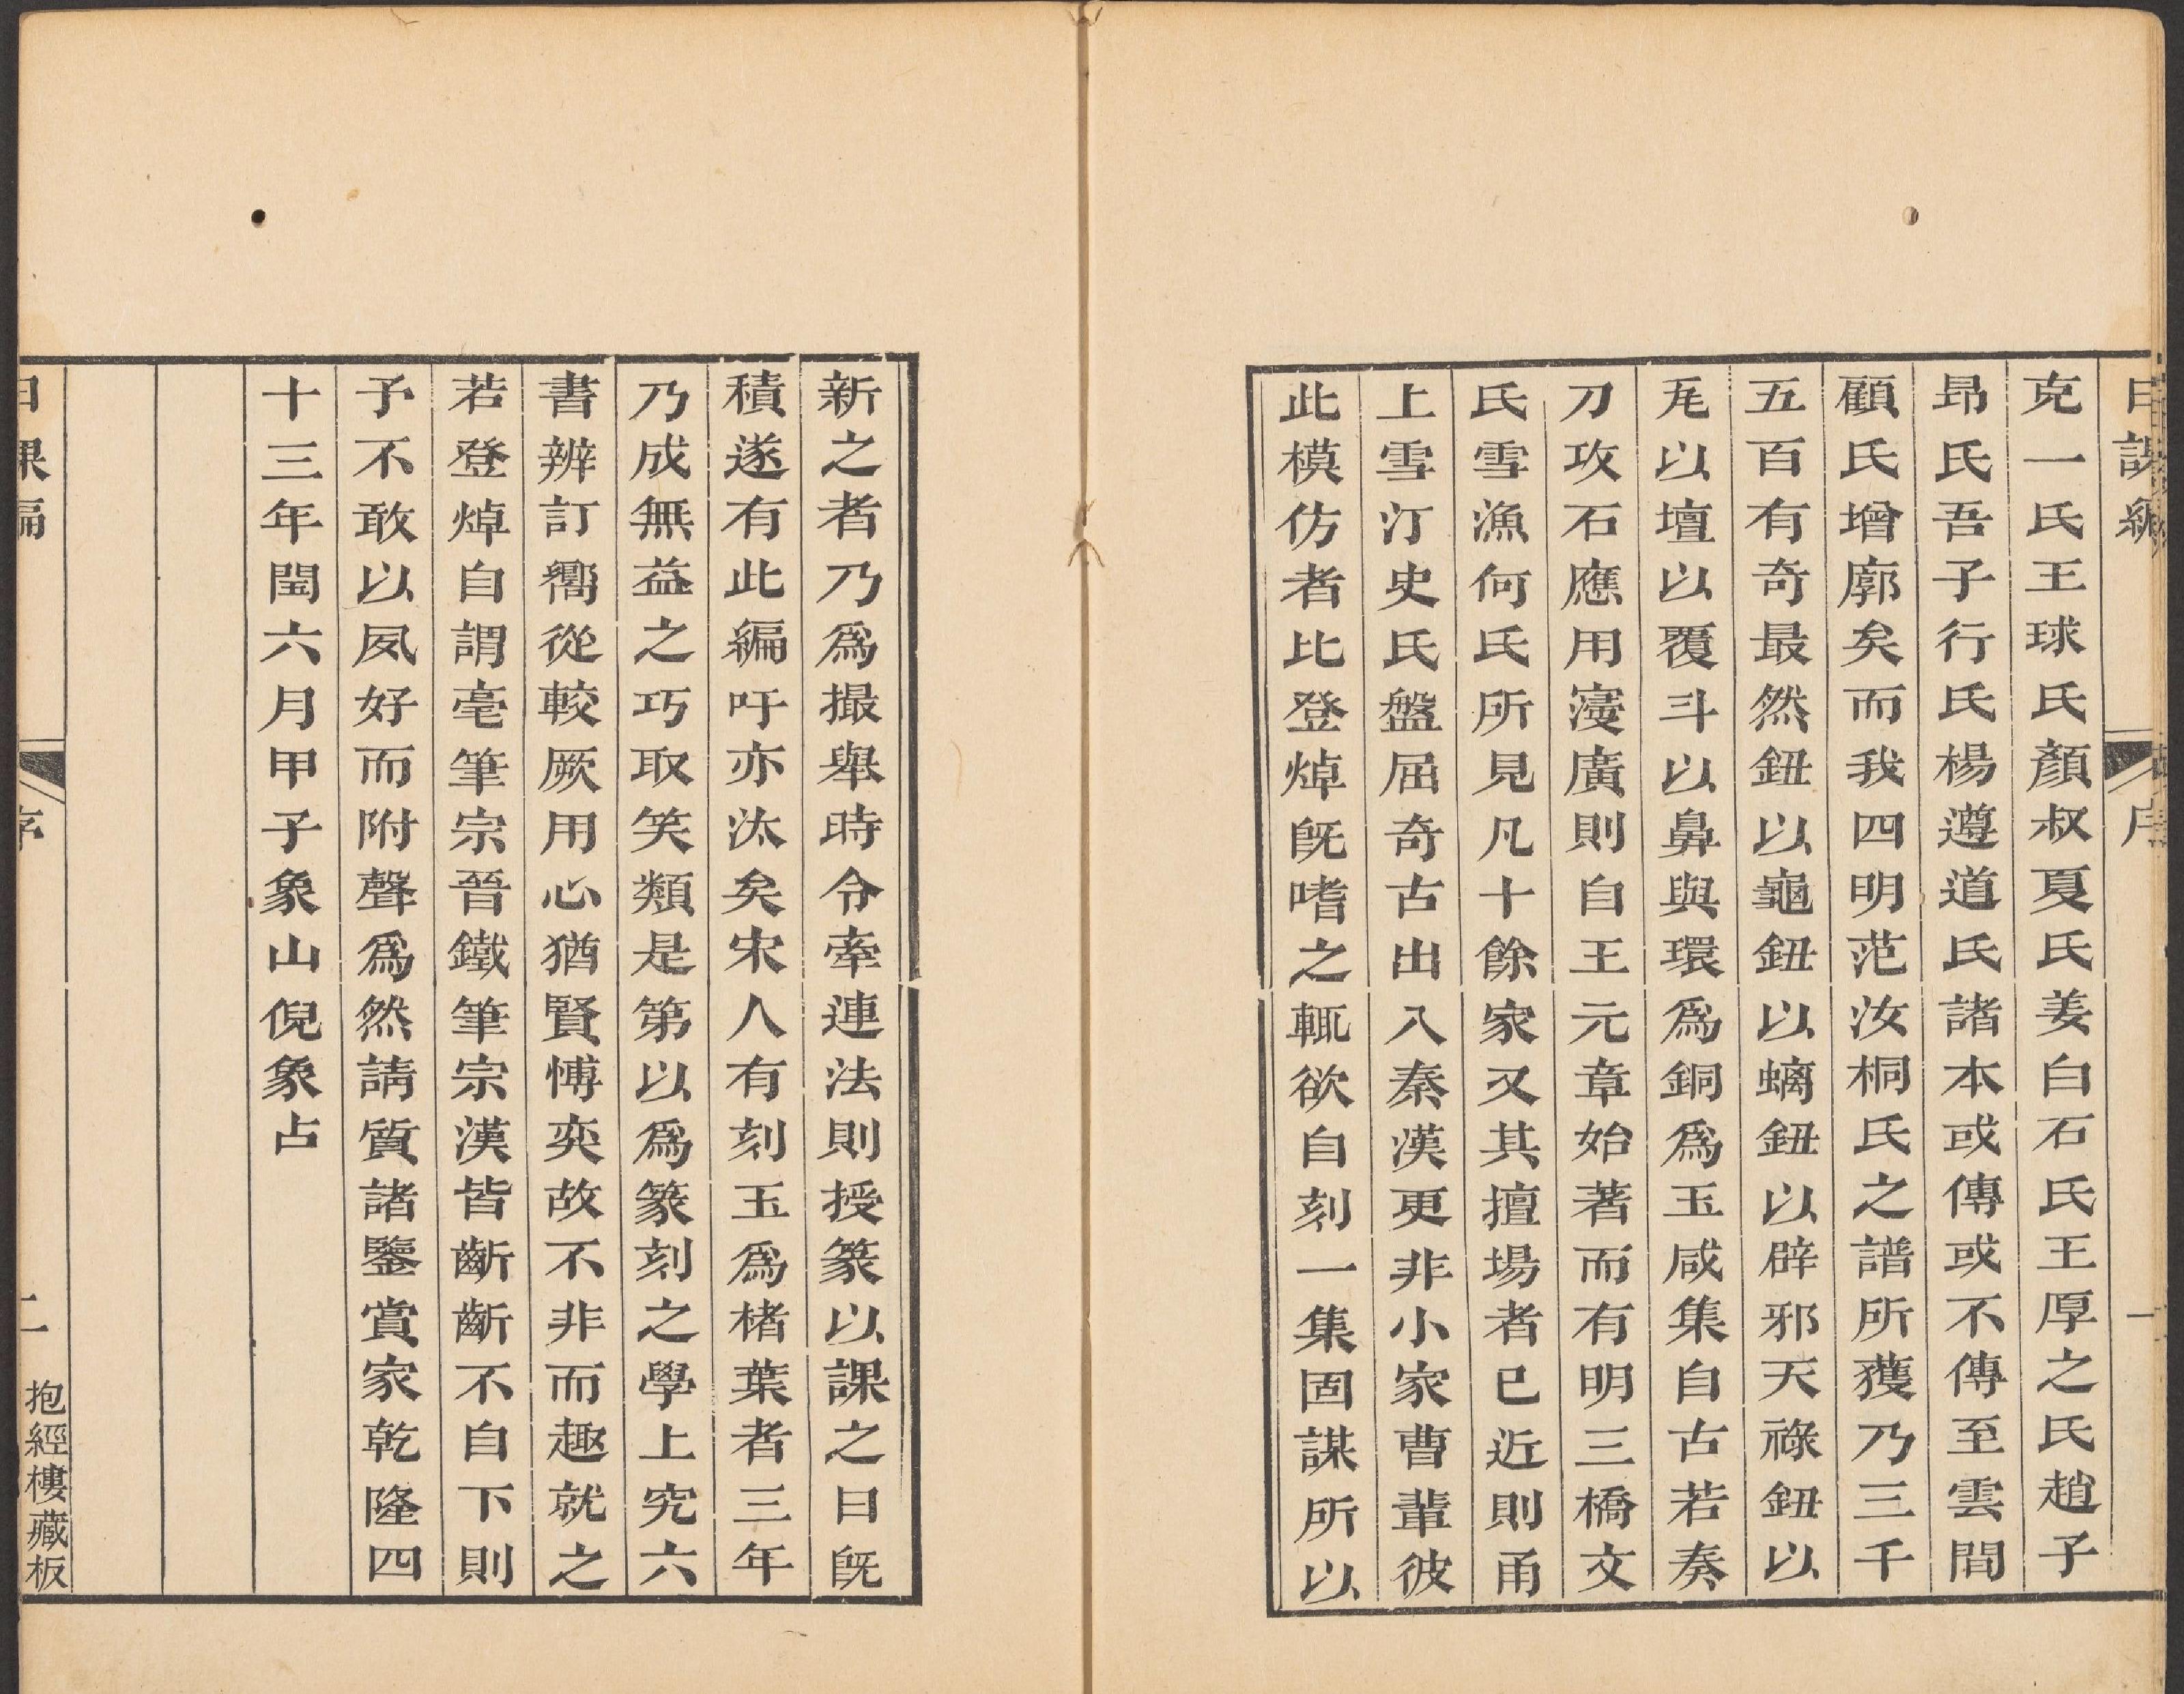 日課編 序 一
克一氏王球氏顏叔夏氏姜白石氏王厚之氏趙子
昻氏吾子行氏楊遵道氏諸本或傳或不傳至雲間
顧氏增廓矣而我四明范汝桐氏之譜所獲乃三千
五百有奇最然鈕以龜鈕以螭鈕以辟邪天祿鈕以
𤬦以壇以覆斗以鼻與環爲銅爲玉咸集自古若奏
刀攻石應用寖廣則自王元章始著而有明三橋文
氏雪漁何氏所見凡十餘家又其擅場者已近則甬
上雪汀史氏盤屈奇古出入秦漢更非小家曹輩彼
此模仿者比登焯旣嗜之輒欲自刻一集固謀所以
新之者乃爲撮舉時令牽連法則授篆以課之日旣
積遂有此編吁亦汰矣宋人有刻玉爲楮葉者三年
乃成無益之巧取笑類是第以爲篆刻之學上究六
書辨訂嚮從較厥用心猶賢愽奕故不非而趣就之
若登焯自謂毫筆宗晉鐵筆宗漢皆齗齗不自下則
予不敢以夙好而附聲爲然請質諸鑒賞家乾隆四
十三年閏六月甲子象山倪象占
日課編 序 二 抱經樓藏板